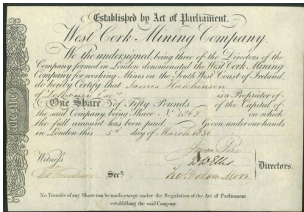 Established by Act of Parliament.
West Cork Mining Company
We the undersigned, being three of the Directors of the
Company formed in London denominated the West Cork Mining
Company for working Mines on the South West Coast of Ireland,
do hereby Certify that James Hutchinson
is an Proprietor of
One Share of Fifty Pounds of the Capital of
the said Company, being Share No. on which
the full amount has been paid. Given under our hands
in London this 5th day of March 1834
Witness
Secy.
Directors.
No Transfer of any Share can be made except under the Regulation of the Act of Parliament
establishing the said Company.